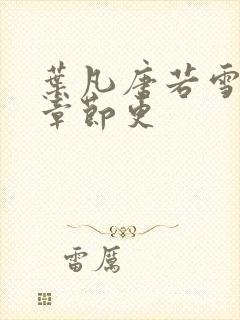 葉凡唐若雪
章節更
雷厲